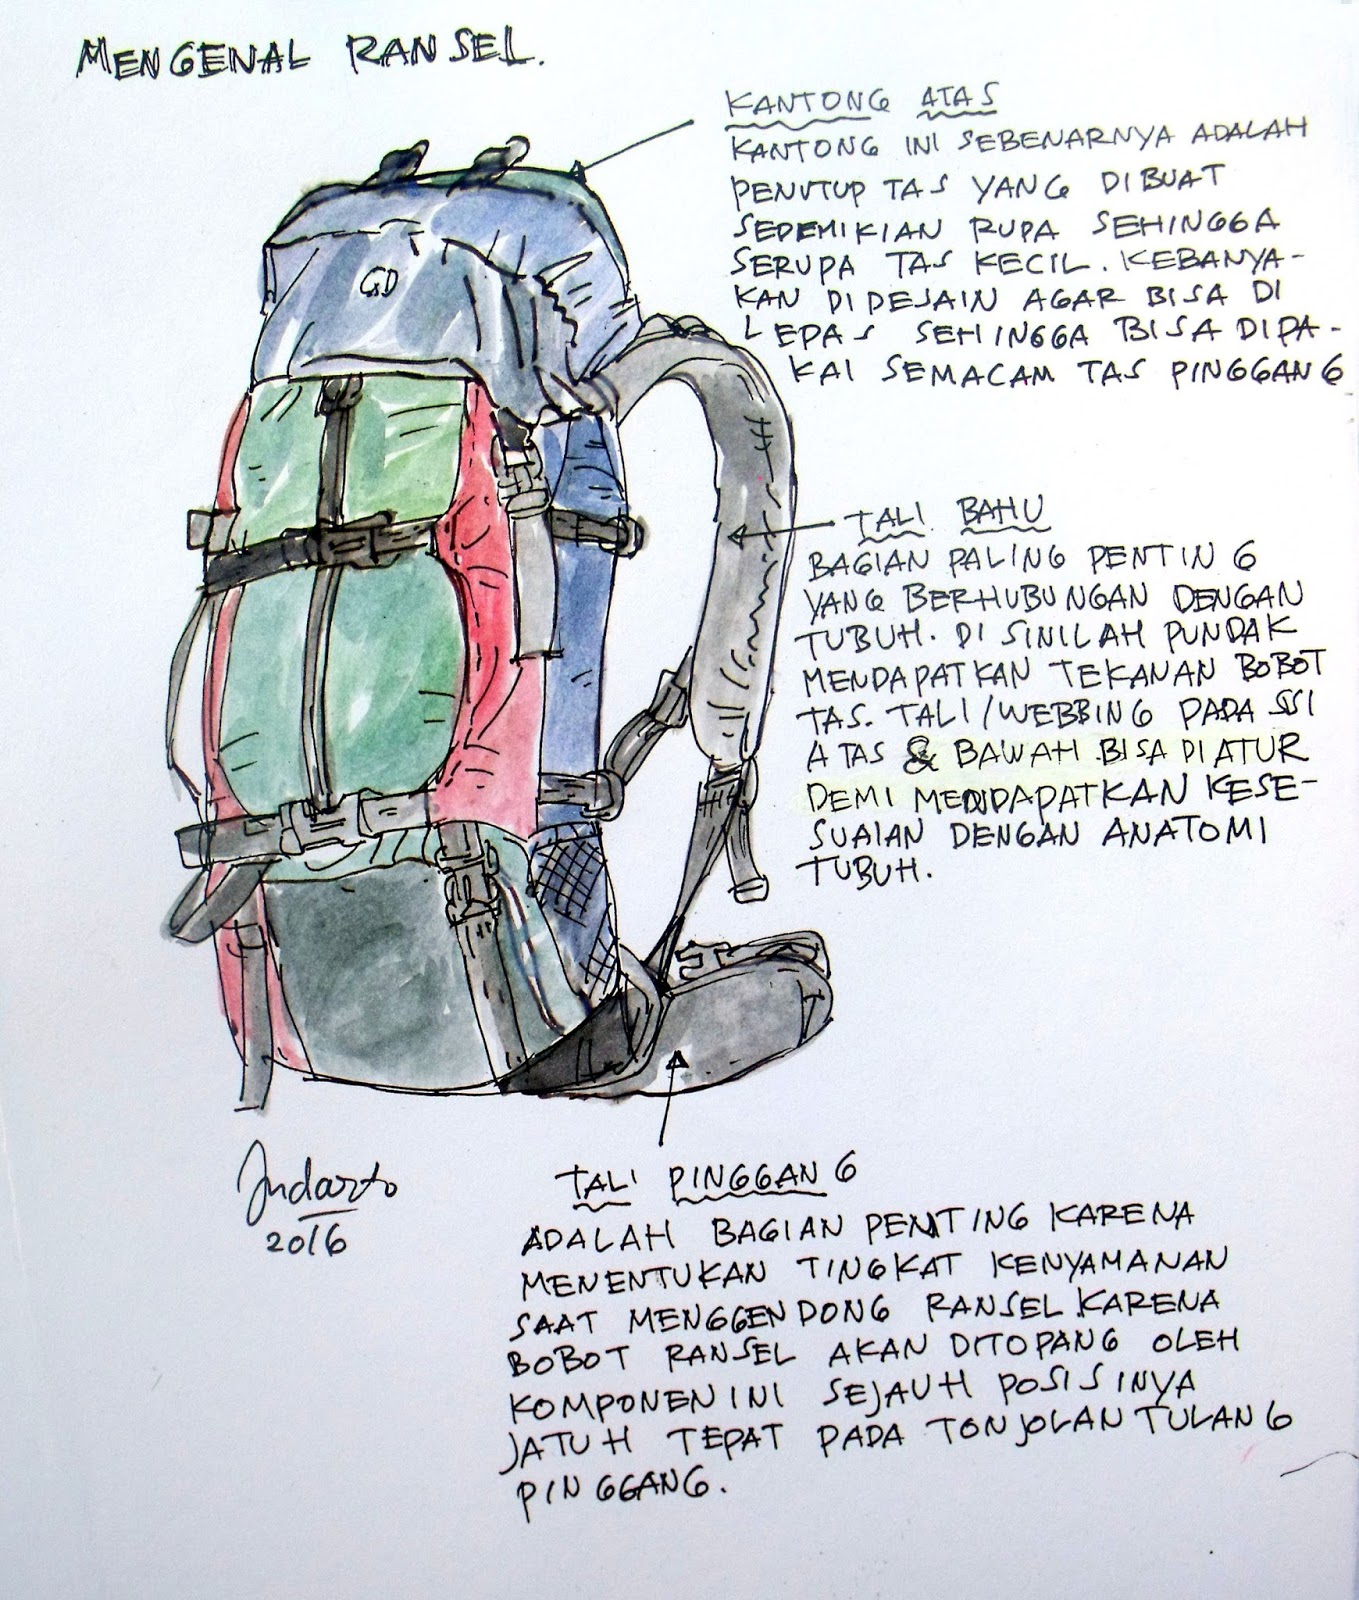 MENGENAL RANSEL.
KANTONG ATAS
KANTONG INI SEBENARNYA ADALAH
PENUTUP TAS YANG DIBUAT
SEDEMIKIAN RUPA SEHINGGA
SERUPA TAS KECIL. KEBANYA-
KAN DIDESAIN AGAR BISA DI
LEPAS SEHINGGA BISA DIPA-
KAI SEMACAM TAS PINGGANG
GD
TALI BAHU
BAGIAN PALING PENTING
YANG BERHUBUNGAN DENGAN
TUBUH. DI SINILAH PUNDAK
MENDAPATKAN TEKANAN BOBOT
TAS. TALI/WEBBING PADA SISI
ATAS & BAWAH BISA DIATUR
DEMI MENDAPATKAN KESE-
SUAIAN DENGAN ANATOMI
TUBUH.
Judarto
2016
TALI PINGGANG
ADALAH BAGIAN PENTING KARENA
MENENTUKAN TINGKAT KENYAMANAN
SAAT MENGGENDONG RANSEL KARENA
BOBOT RANSEL AKAN DITOPANG OLEH
KOMPONEN INI SEJAUH POSISINYA
JATUH TEPAT PADA TONJOLAN TULANG
PINGGANG.